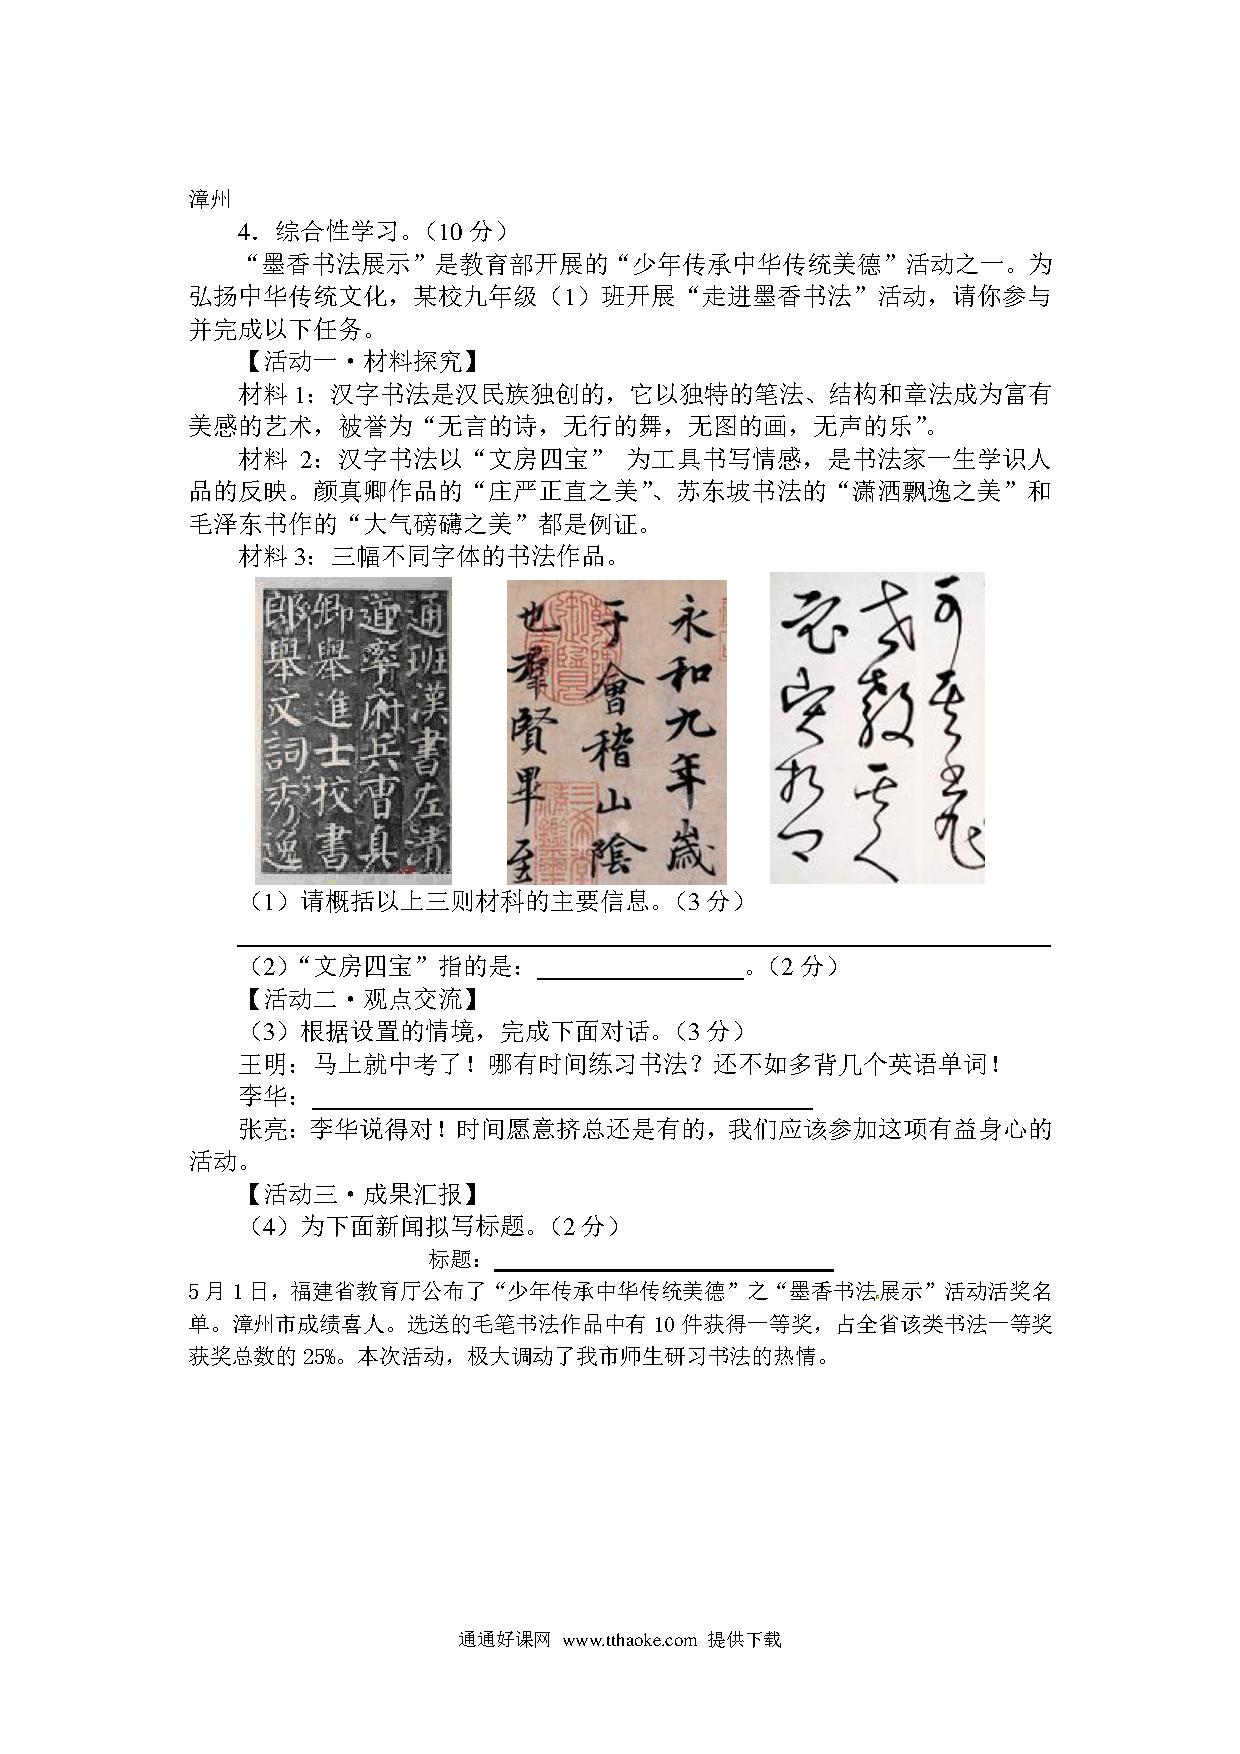 漳州
4．综合性学习。（10 分）
“墨香书法展示”是教育部开展的“少年传承中华传统美德”活动之一。为
弘扬中华传统文化，某校九年级（1）班开展“走进墨香书法”活动，请你参与
并完成以下任务。
【活动一·材料探究】
材料 1：汉字书法是汉民族独创的，它以独特的笔法、结构和章法成为富有
美感的艺术，被誉为“无言的诗，无行的舞，无图的画，无声的乐”。
材料 2：汉字书法以“文房四宝” 为工具书写情感，是书法家一生学识人
品的反映。颜真卿作品的“庄严正直之美”、苏东坡书法的“潇洒飘逸之美”和
毛泽东书作的“大气磅礴之美”都是例证。
材料 3：三幅不同字体的书法作品。
通班漢書左清
道率府兵曹真
卿舉進士挍書
郎舉文詞秀逸
永和九年歲
于會稽山陰
也羣賢畢至
（1）请概括以上三则材科的主要信息。（3 分）
（2）“文房四宝”指的是：________。（2 分）
【活动二·观点交流】
（3）根据设置的情境，完成下面对话。（3 分）
王明：马上就中考了！哪有时间练习书法？还不如多背几个英语单词！
李华：________
张亮：李华说得对！时间愿意挤总还是有的，我们应该参加这项有益身心的
活动。
【活动三·成果汇报】
（4）为下面新闻拟写标题。（2 分）
标题：________
5 月 1 日，福建省教育厅公布了“少年传承中华传统美德”之“墨香书法展示”活动活奖名
单。漳州市成绩喜人。选送的毛笔书法作品中有 10 件获得一等奖，占全省该类书法一等奖
获奖总数的 25%。本次活动，极大调动了我市师生研习书法的热情。
通通好课网 www.tthaoke.com 提供下载